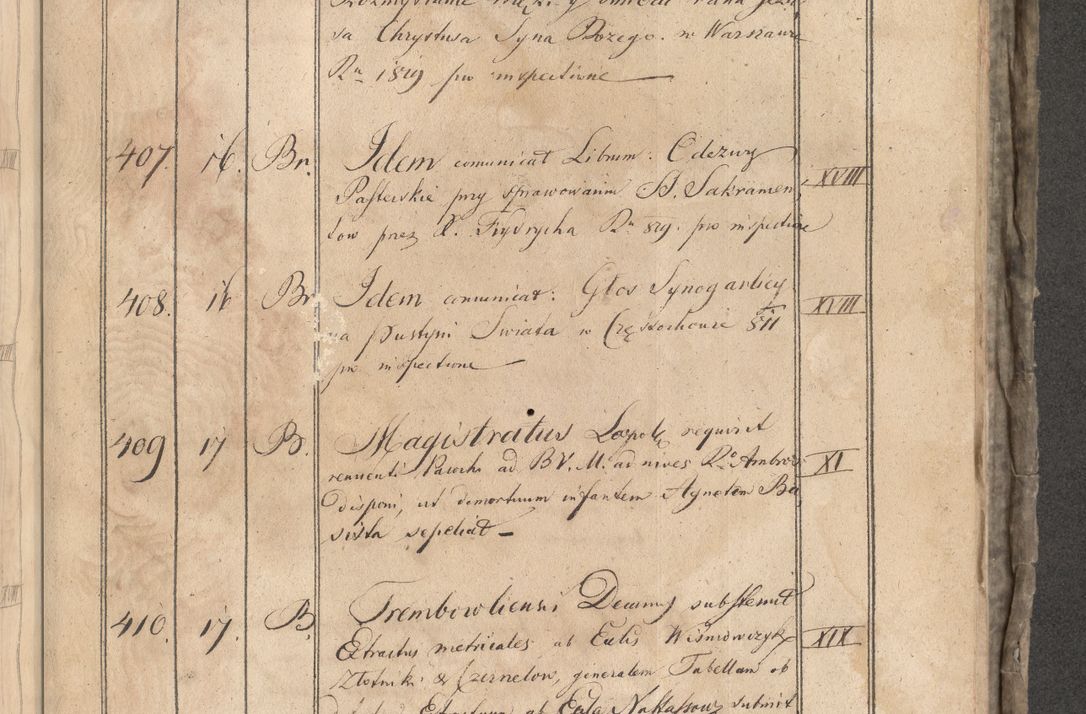 sa Chrystusa Syna Bozego. w Warszawie
Ru 1819 pro inspectione —
407. 16. Br. Idem comunicat Librum: Odezwy XVIII
Pasterskie przy sprawowaniu SS. Sakramen
tow przez X. Frydrycha Ru 819. pro inspectione
408. 16 Br Idem comunicat: Głos Synogarlicy XVIII
na Pustyni Swiata w Częstochowie 811
pro inspectione —
409 17 Br. Magistratus requirit XI
ad B.V.M. ad nives Ro Ambros
disponi, ut demortuum infantem Agnetem Ba
sista sepeliat —
410. 17. B. Trembowliensis Decanus substernit XIX
Extractus metricales ab Ecclis
Złotniki & Czernelow, generalem Tabellam ab
Extractum ab Eccla submit